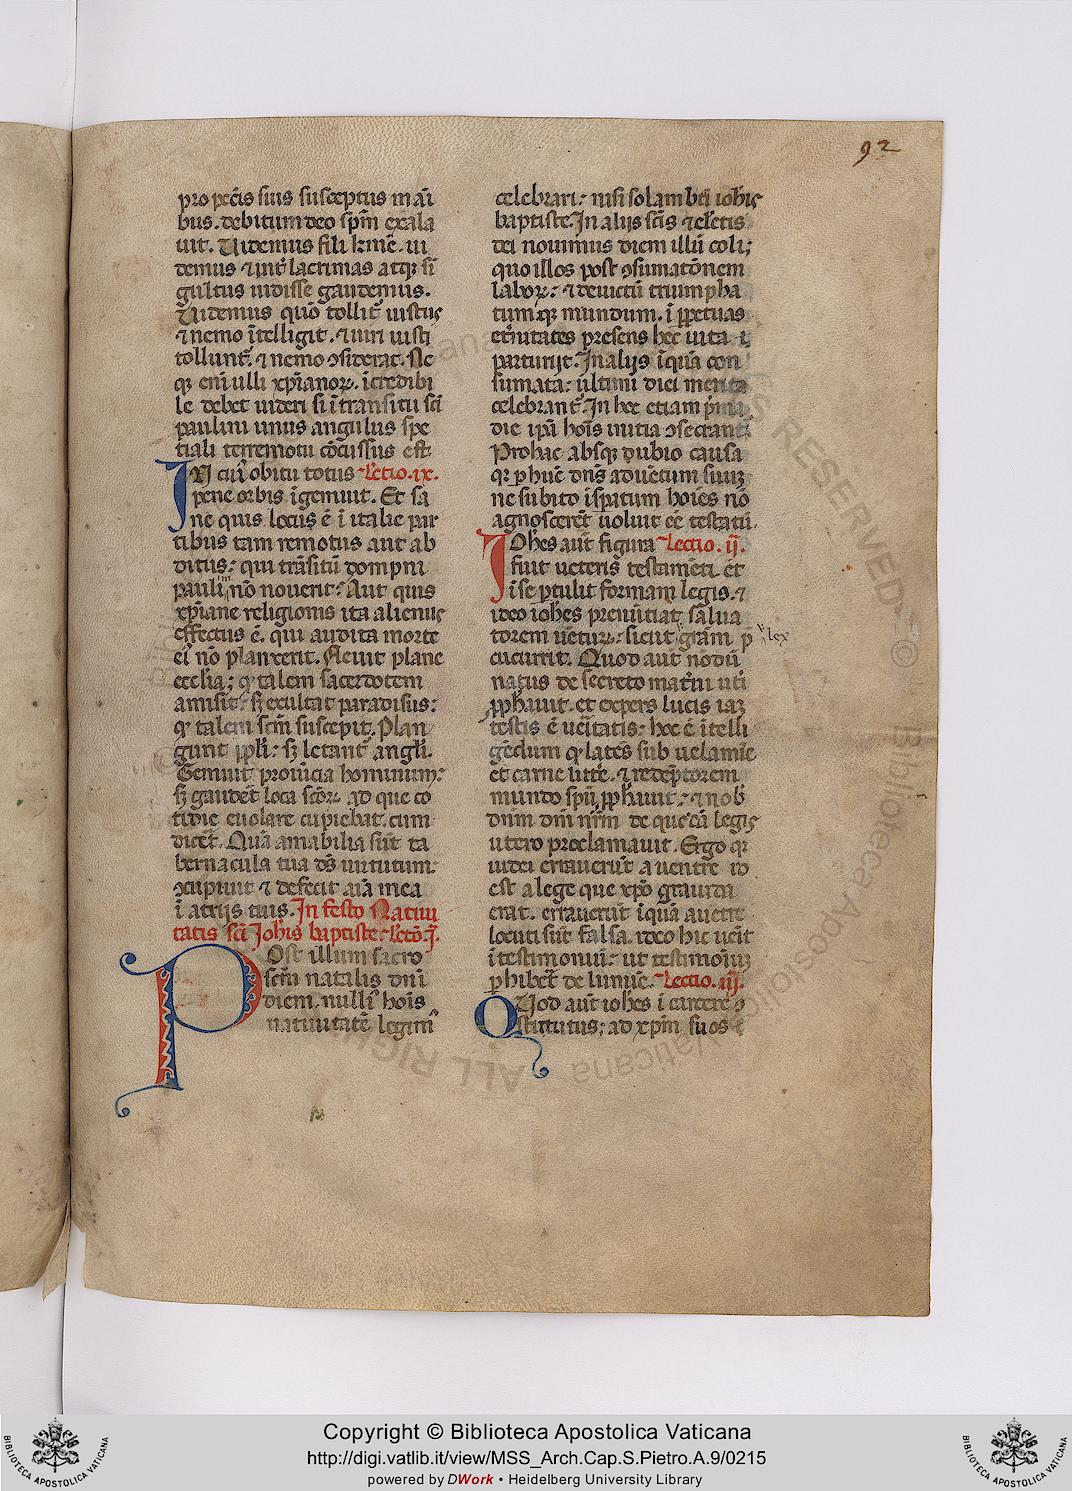 92
pro pec̄is suis susceptus mãi
bus. debitum deo sp̄m exala
uit. Uidemus fili kr̄me. ui
demus ⁊ int̄ lacrimas atq; si
gultus uidisse gaudemus.
Uidemus quō tollit̄ iustus
⁊ nemo ītelligit. ⁊ uiri iusti
tollunt̄. ⁊ nemo ↄsiderat. Ne
q; eni ulli xp̄ianoꝝ. īcredibi
le debet uideri si ī transitu sc̄i
paulini unus angulus spe
tiali terremotu cōcussus est.
IN cui obitu totus Lectio .ix.
pene orbis īgemuit. Et sa
ne quis locus ē ī italie par
tibus tam remotus aut ab
ditus; qui trāsitū dompni
pauli nō nouerit? Aut quis
xp̄iane religionis ita alienus
effectus ē. qui audita morte
ei nō planxerit. Fleuit plane
eccl̄ia; q talem sacerdotem
amisit: sꝫ exultat paradisus:
q talem sc̄m suscepit. Plan
gunt pp̄li: sꝫ letant̄ angl̄i.
Gemuit prouīcia hominum:
sꝫ gaudēt loca sc̄oꝝ ad que co
tidie euolare cupiebat. cum
dicet̄. Quā amabilia sūt ta
bernacula tua ds̄ uirtutum:
ↄcupiuit ⁊ defecit aīa mea
ī atrijs tuis. In festo Natiui
tatis sc̄i Joh̄is baptiste. Lect̄o. J.
Post illum sacro
sc̄m natalis dn̄i
diem. nulli hoīs
natiuitatē legim
celebrari: nisi solam bt̄i ioh̄is
baptiste. In alijs sc̄is ⁊ elc̄tis
dei nouimus diem illū coli;
quo illos post ↄsumatōnem
laboꝝ: ⁊ deuictū triumpha
tum q; mundum. ī ꝑpetuas
et̄nitates presens hec uita
parturijt. In alijs īquā con
sumata: ultimi diei merita
celebrant̄. In hec etiam p̄ma
die ip̄a hoīs initia ↄsecrant̄.
Prohac absq; dubio causa
qꝛ ꝑ huc̄ dn̄s aduētum suuꝫ
ne subito īsperatum hoīes nō
agnoscerēt uoluit eē testatū.
IOhes aūt figura Lectio .ij.
fuit ueteris testamēti. et
ī se ꝑtulit formam legis. ⁊
ideo iohes prenūtiat salua
torem uētuꝝ: sicut gr̄am p
lex
cucurrit. Quod aūt nōdū
natus de secreto mat̄ni ut̄i
ꝓphauit. et expers lucis iaꝫ
testis ē uēitatis: hoc ē ītelli
gēdum q latēs sub uelamīe
et carne litt̄e. ⁊ redēptorem
mundo spū ꝓphauit: ⁊ nob̄
dn̄m dn̄i nr̄m de que dā legis
utero proclamauit. Ergo qꝛ
iudei errauerūt a uentre io
est a lege que xp̄o grauida
erat. errauerūt īquā auentre
locuti sūt falsa. ideo hic uēit
ī testimoniū: ut testimoniū
ꝑhibet̄ de lumīe. Lectio .iij.
QUod aūt iohes ī carcere ↄ
stitutus; ad xp̄m suos
Copyright © Biblioteca Apostolica Vaticana
http://digi.vatlib.it/view/MSS_Arch.Cap.S.Pietro.A.9/0215
powered by DWork • Heidelberg University Library